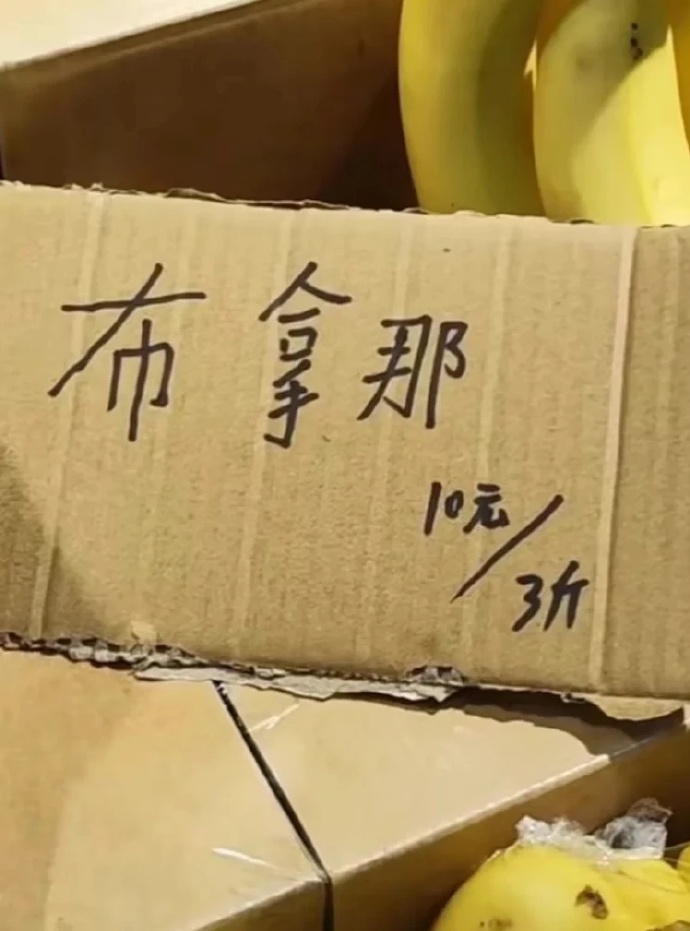 布拿那
10元/3斤